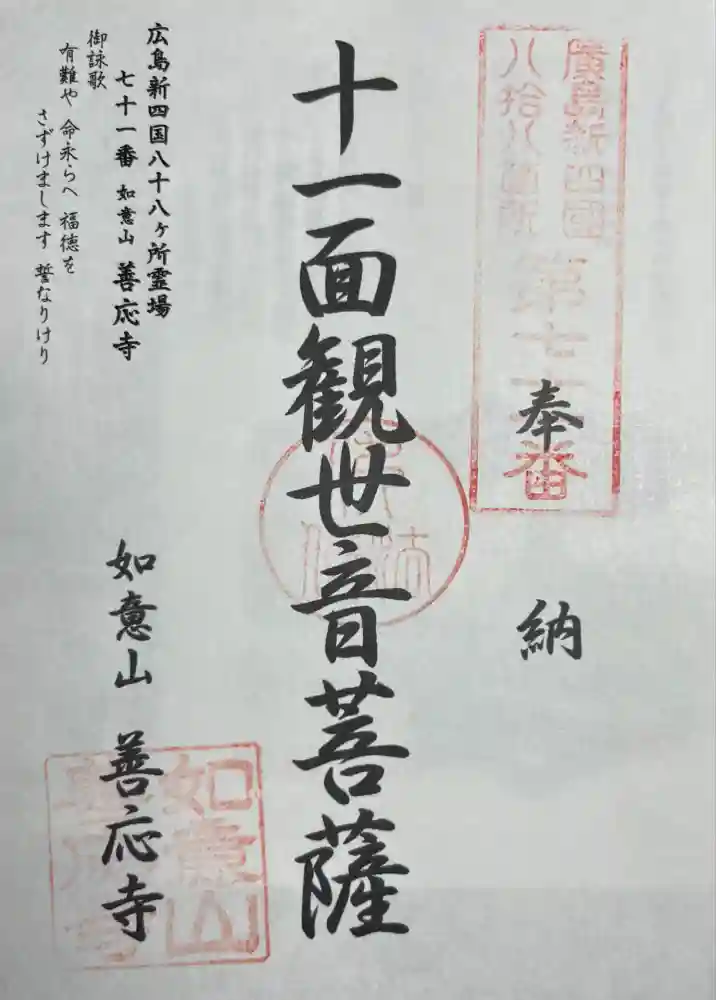 廣島新四國
八拾八箇所
第七十一番
奉納
十一面観世音菩薩
広島新四国八十八ヶ所霊場
七十一番 如意山 善応寺
御詠歌
有難や 命永らへ 福徳を
さずけまします 誓なりけり
如意山 善応寺
如意山